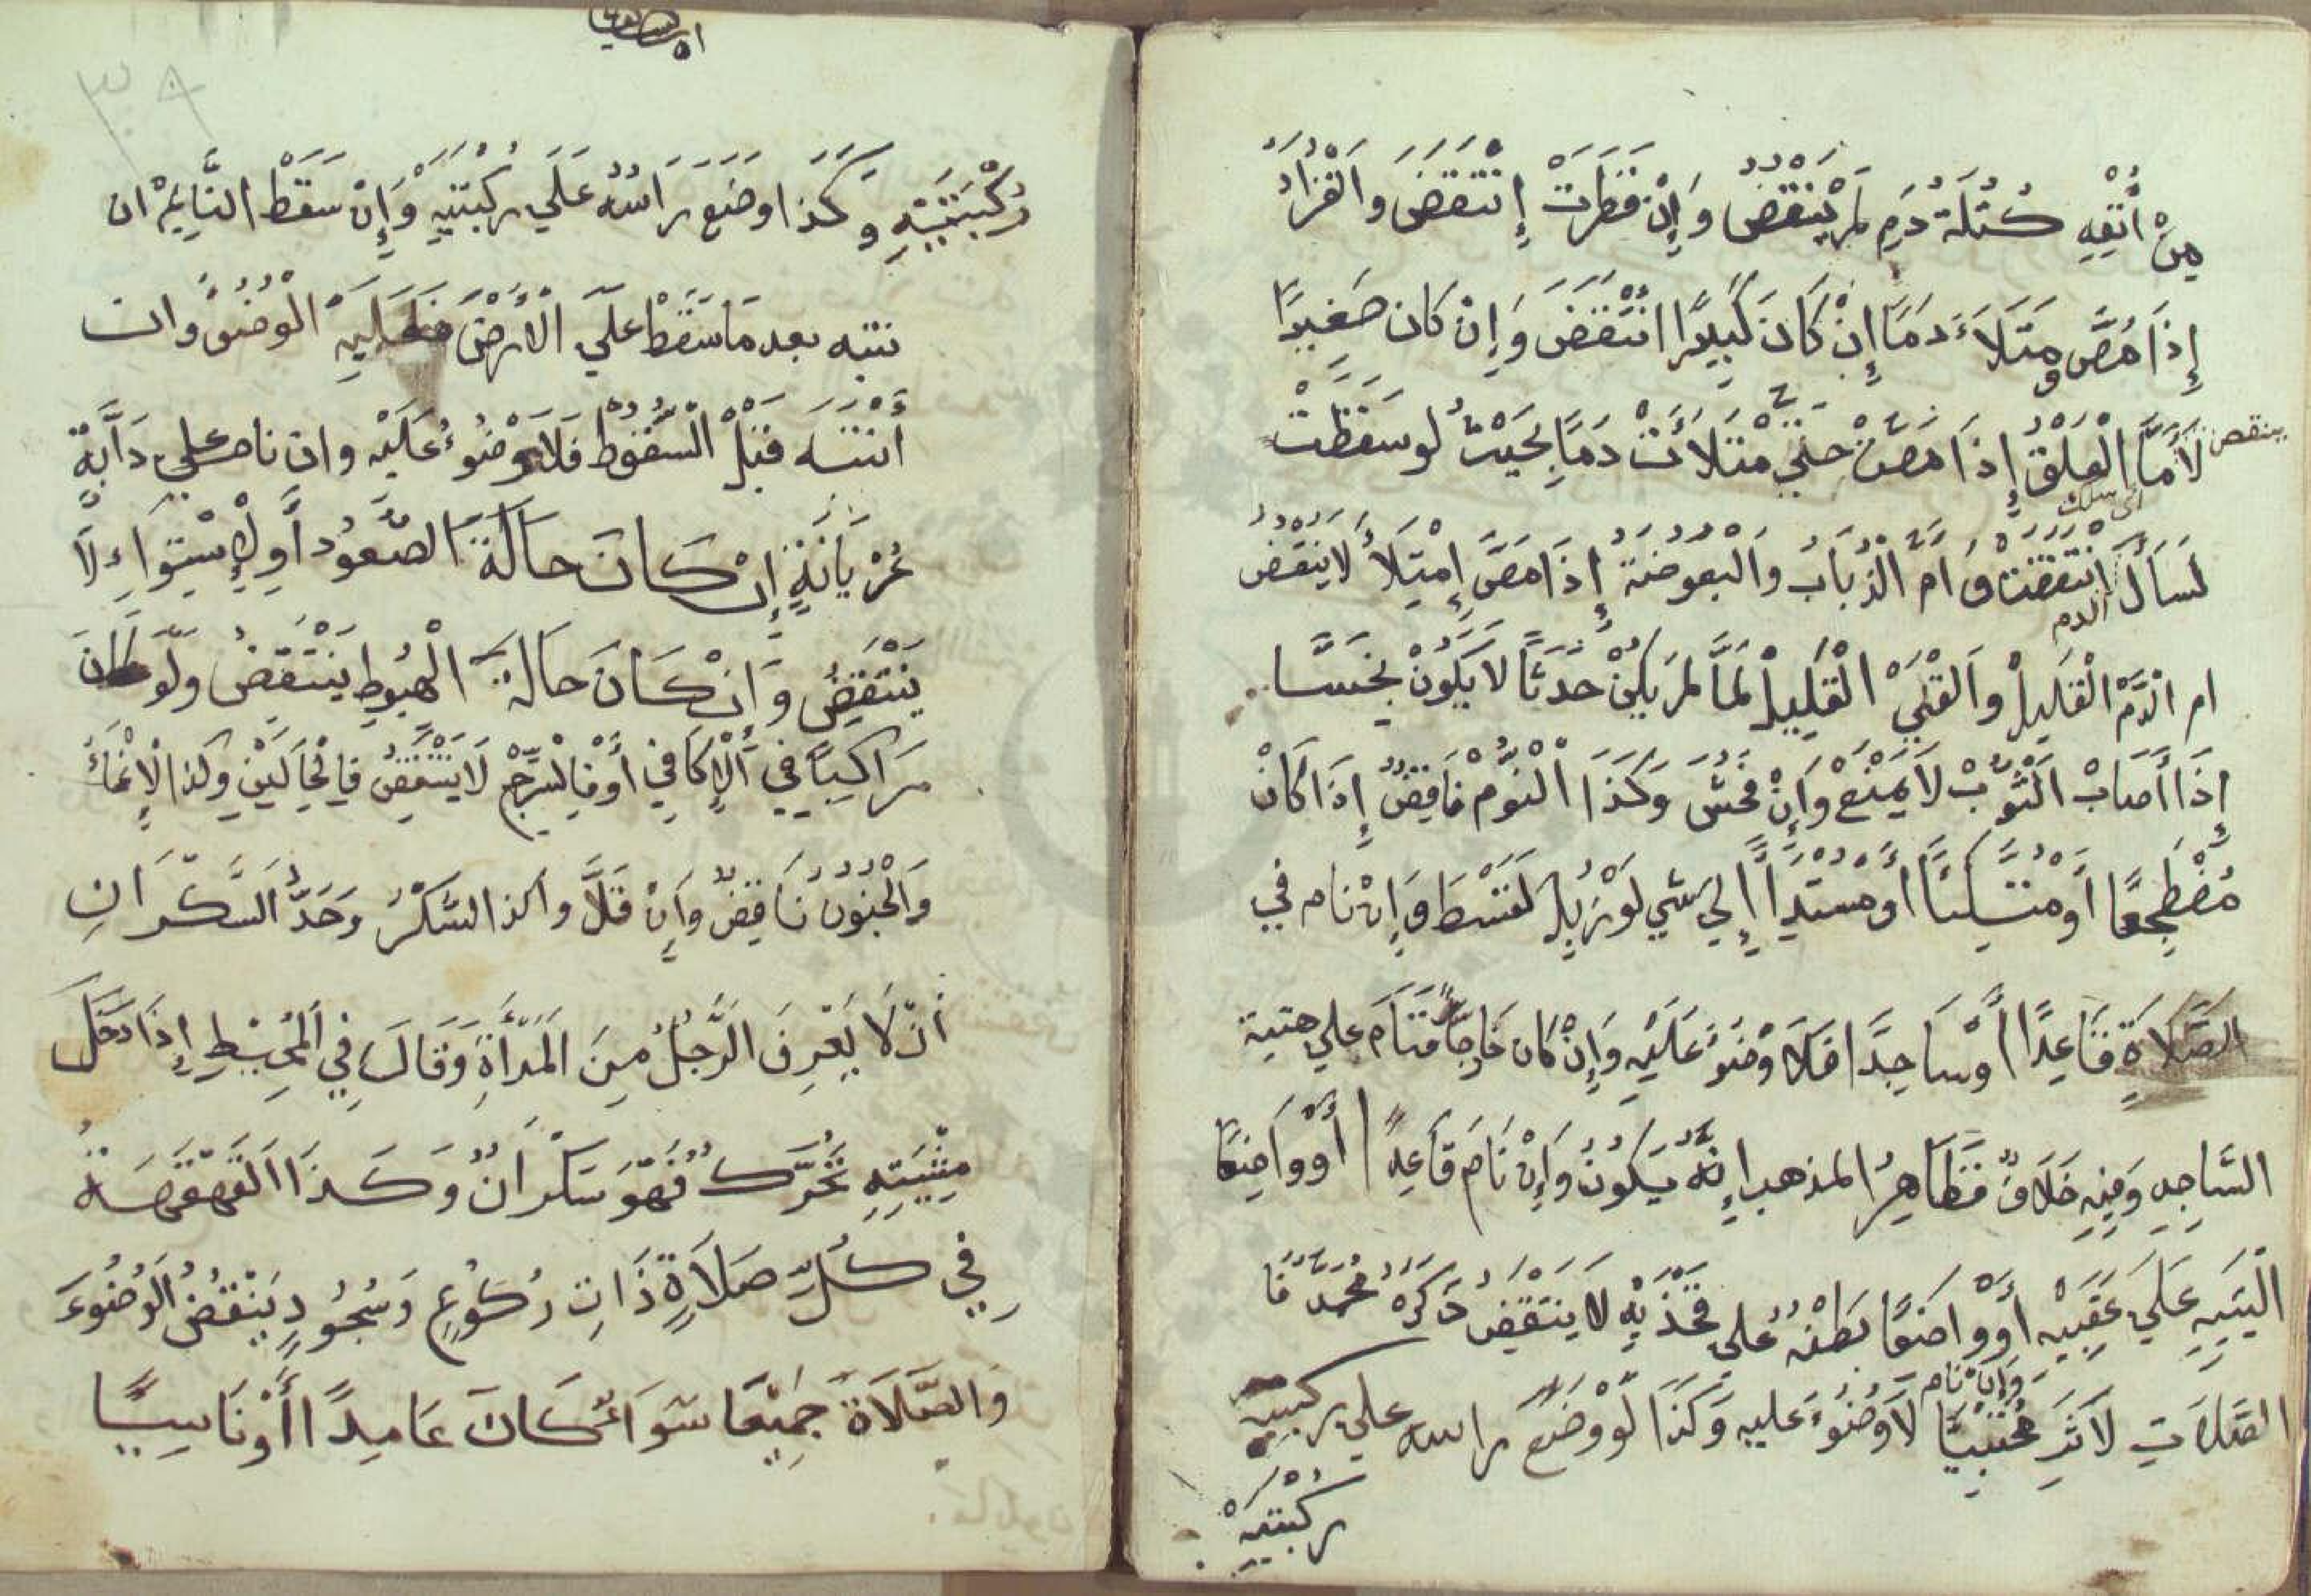 مِنْ أَنْفِهِ كُتْلَةُ دَمٍ لَمْ يَنْقُضْ وَإِنْ قَطَرَتْ إِنْتَقَضَ وَالْقُرَادُ
إِذَا مُصَّ وَمْتَلَاءَ دَمًا إِنْ كَانَ كَبِيرًا انْتَقَضَ وَإِنْ كَانَ صَغِيرًا
لَا أَمَّا الْعَلَقُ إِذَا مَصَّتْ حَتَّي مْتَلَأَتْ دَمًا بِحَيْثُ لَوْ سَقَطَتْ
ينقض
لَسَالَ انْتَقَضَتْ وَامّ الذُّبَابُ وَالْبَعُوضَةُ إِذَا مَصَّ إِمْتِلَأَ لَا يَنْقُضُ
الدم
ام الدَّمْ الْقَلِيلْ وَالْقَيْ الْقَلِيلْ لَمَّا لَمْ يَكُنْ حَدَثًا لَا يَكُونُ نَجَسًا
إِذَا أَصَابَ الثَّوْبْ لَا يَمْنَعْ وَإِنْ فَحُشَ وَكَذَا النَّوْمْ نَاقِضٌ إِذَا كَانْ
مُضْطَجِعًا أَوْ مُتَّكِئًا أَوْ مُسْتَدِاً إِلَي شَيْ لَوْ زُيلَ لَسَقَطَ وَإِنْ نَام فِي
الصَّلَاةِ قَاعِدًا أَوْ سَاجِدًا فَلَا وُضُوءَ عَلَيْهِ وَإِنْ كَانَ خَارِجًا فَنَامَ عَلَي هيئة
السَّاجِدِ وَفِيهِ خِلَافٌ فَظَاهِرُ المذهب إِنَّهُ يَكُونُ وَإِنْ نَامَ قَاعِدًا أَوْ وَاضِعًا
الْيَيْهِ عَلَي عَقِبَيْهِ أَوْ وَاضِعًا بَطْنَهُ عَلَي فَخْذَيْهِ لَا يَنْتَقِضُ ذَكَرَهُ مُحَمَّدٌ فَا
وَإِنْ نَام
الصَّلَاةِ لَاثَرِ مُحْتَبِيًا لَا وُضُوءَ عليه وَكَذَا لَوْ وَضَعَ راسه علي ركبتيه
رُكْبَتَيْهْ
٣٨
رُكْبَتَيْهِ وَكَذَا وَضَعَ رَاسُهُ عَلَي رُكْبَتَيْهِ وَإِنْ سَقَطْ النَّايِمْ ان
نتبه بعد مَا سَقَطْ عَلَي الْأَرْضْ فَعَلَيْهِ الْوُضُوءُ وان
أَنْتَبَهَ قَبْلَ السُّقُوطْ فَلَا وُضُوءُ عَلَيْه وان نام علي دَابَّةٍ
عُرْيَانَةٍ إِنْ كَانَ حَالَةَ الصُّعُودِ أَوِ لْإِسْتِوَاءِ لَا
يَنْتَقِضُ وَإِنْ كَانَ حَالَةَ الْهُبُوطِ يَنْتَقِضُ وَلَوْ كَانَ
رَاكِبًا فِي الْإِكَافِي أَوْ فِالسَّرْجِ لَا يَنْتَقِضُ فِالْحَالَيْنِ وَكَذا لْإِغْمَاءُ
وَالْجُنُونُ نَاقِضٌ وَإِنْ قَلَّ وَاكذ السُّكْرُ وَحَدُّ السَّكْرَانِ
أَنْ لَا يَعْرِفَ الرَّجُلُ مِنَ الْمَرْأَةِ وَقَالَ فِي الْمُحِيْطِ إِذَا دَخَلَ
مِشْيَتِهِ تَحَرُّكٌ فَهُوَ سَكْرَانٌ وَكَذَا الْقَهْقَهَةُ
فِي كُلِّ صَلَاةٍ ذَاتِ رُكُوعٍ وَسُجُودٍ يَنْقُضُ الْوُضُوءَ
وَالصَّلَاةَ جَمِيْعًا سَوَاءٌ كَانَ عَامِدًا أَوْ نَاسِيًا